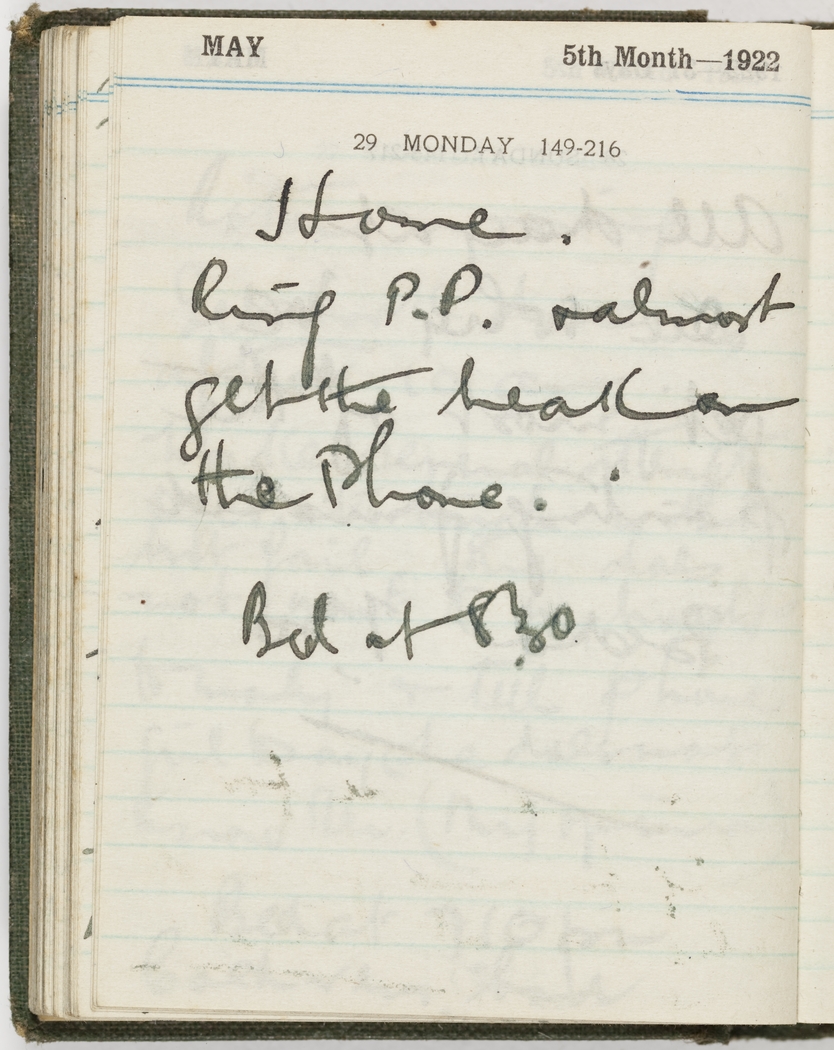 MAY 5th Month—1922
29 MONDAY 149-216
Home.
Ring P.P. & almost
get the break on
the Phone.
Bed at 8.30